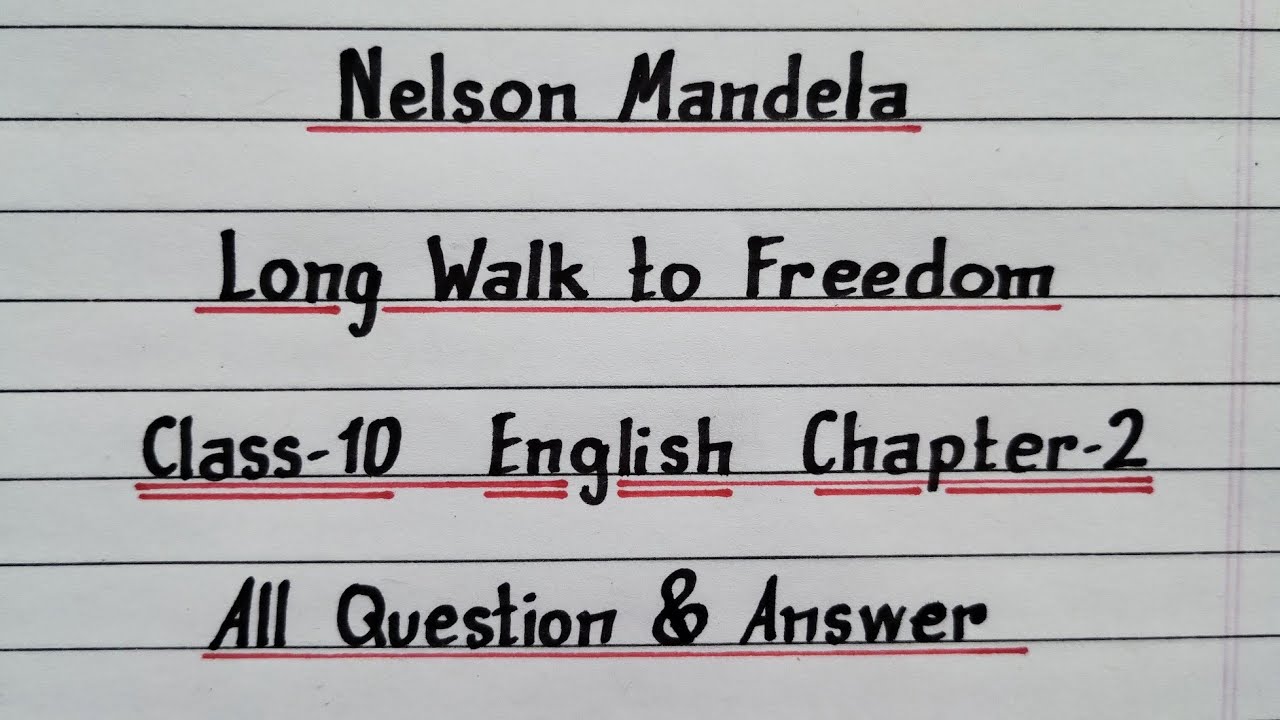 Nelson Mandela
Long Walk to Freedom
Class-10 English Chapter-2
All Question & Answer